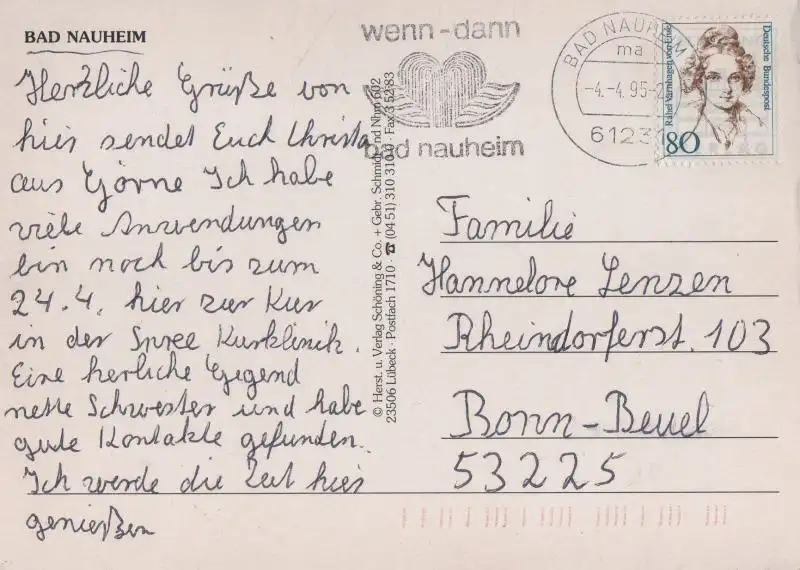 BAD NAUHEIM
Herzliche Grüße von
hier sendet Euch Christa
aus Görne Ich habe
viele Anwendungen
bin noch bis zum
24.4. hier zur Kur
in der Spree Kurklinik.
Eine herliche Gegend
nette Schwester und habe
gute Kontakte gefunden.
Ich werde die Zeit hier
genießen
© Herst. u. Verlag Schöning & Co. + Gebr. Schmidt
23506 Lübeck · Postfach 1710 · ☎ (04 51) 310 310 · Fax 3 52 83
wenn-dann
bad nauheim
BAD NAUHEIM
ma
-4.-4.95-
61231
Deutsche Bundespost
Rahel Varnhagen von Ense
80
Familie
Hannelore Lenzen
Rheindorferst. 103
Bonn-Beuel
53225